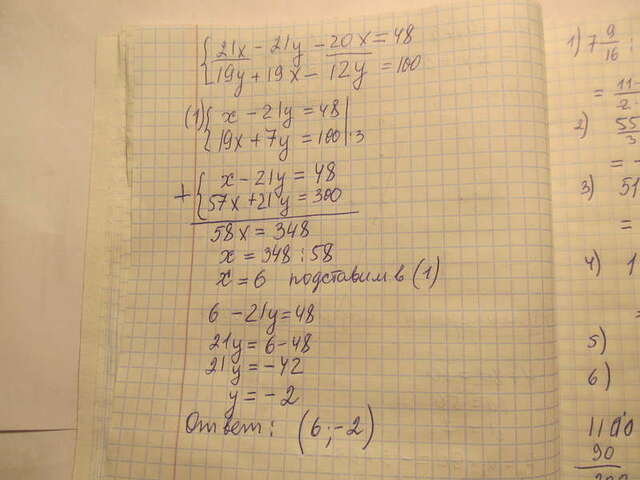 21x - 21y - 20x = 48
19y + 19x - 12y = 100
(1) x - 21y = 48
19x + 7y = 100 | · 3
+ x - 21y = 48
57x + 21y = 300
58x = 348
x = 348 : 58
x = 6 подставим в (1)
6 - 21y = 48
21y = 6 - 48
21y = -42
y = -2
Ответ: (6; -2)
1) 7 9/16 :
= 11-
2
2) 55/3
= -
3) 51
=
4) 1
=
5)
6)
1100
90